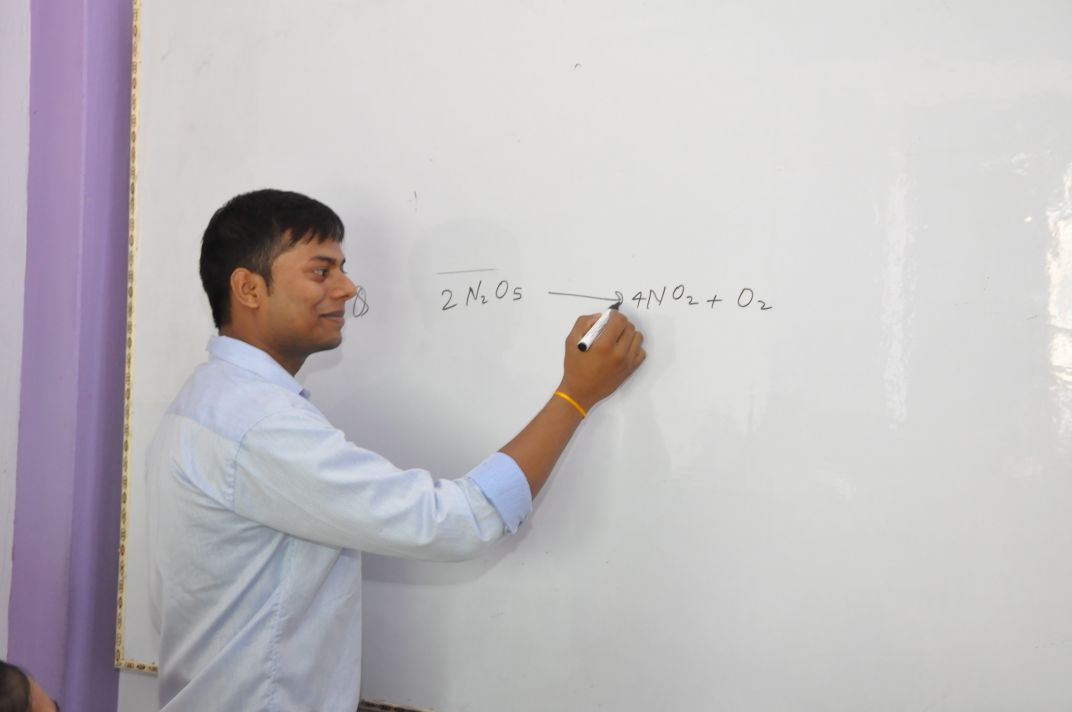 8 2 N₂O₅ → 4NO₂ + O₂